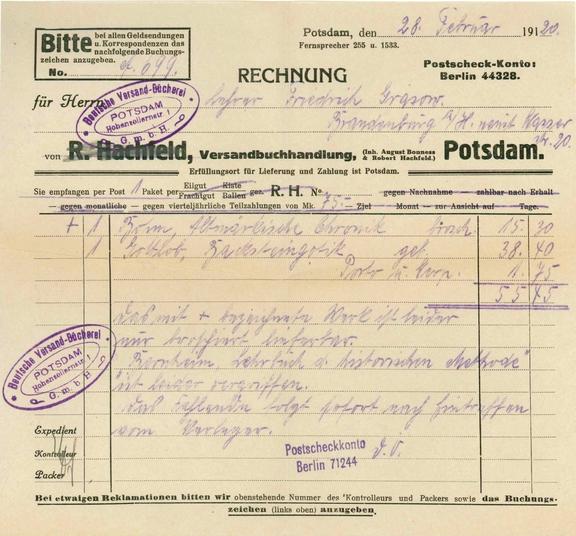 Bitte bei allen Geldsendungen u. Korrespondenzen das nachfolgende Buchungszeichen anzugeben.
No. 699.
Potsdam, den 28. Februar 1920.
Fernsprecher 255 u. 1533.
RECHNUNG
Postscheck-Konto: Berlin 44328.
Deutsche Versand-Bücherei
POTSDAM
Hohenzollernstr. 1
G.m.b.H.
für Herrn Lehrer Friedrich Grasow.
Brandenburg a/H.
20.
von R. Hachfeld, Versandbuchhandlung, (Inh. August Bonness & Robert Hachfeld.) Potsdam.
Erfüllungsort für Lieferung und Zahlung ist Potsdam.
Sie empfangen per Post 1 Paket per Eilgut Frachtgut Kiste Ballen gez. R. H. No. gegen Nachnahme — zahlbar nach Erhalt
— gegen monatliche — gegen vierteljährliche Teilzahlungen von Mk. 75.- — Ziel Monat — zur Ansicht auf Tage.
+ 1 Altmärkische Chronik brosch. 15.30
1 Backsteingotik geb. 38.40
Porto u. Verp. 1.75
55 45
Das mit + bezeichnete Werk ist leider
nur broschiert lieferbar.
Bernheim, Lehrbuch d. historischen Methode"
ist leider vergriffen.
Das Fehlende folgt sofort nach Eintreffen
vom Verleger.
D. O.
Deutsche Versand-Bücherei
POTSDAM
Hohenzollernstr. 1
G.m.b.H.
Expedient
Kontrolleur
Packer
Postscheckkonto
Berlin 71244
Bei etwaigen Reklamationen bitten wir obenstehende Nummer des Kontrolleurs und Packers sowie das Buchungs-
zeichen (links oben) anzugeben.